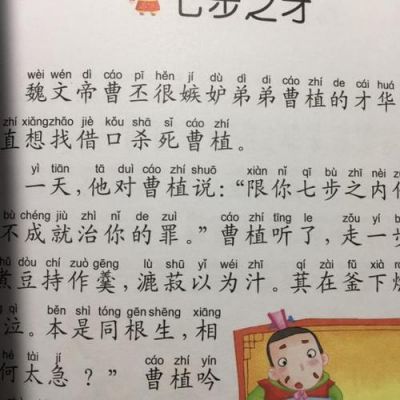 七步之才
wèi wén dì cáo pī hěn jí dù dì di cáo zhí de cái huá
魏文帝曹丕很嫉妒弟弟曹植的才华
zhí xiǎng zhǎo jiè kǒu shā sǐ cáo zhí
直想找借口杀死曹植。
yì tiān tā duì cáo zhí shuō xiàn nǐ qī bù zhī nèi zuò
一天，他对曹植说：“限你七步之内作
bù chéng jiù zhì nǐ de zuì cáo zhí tīng le zǒu yí b
不成就治你的罪。”曹植听了，走一步
dòu chí zuò gēng lù shū yǐ wéi zhī qí zài fǔ xià
煮豆持作羹，漉菽以为汁。萁在釜下燃
qì běn shì tóng gēn shēng xiāng
泣。本是同根生，相
hé tài jí cáo zhí yín
何太急？”曹植吟